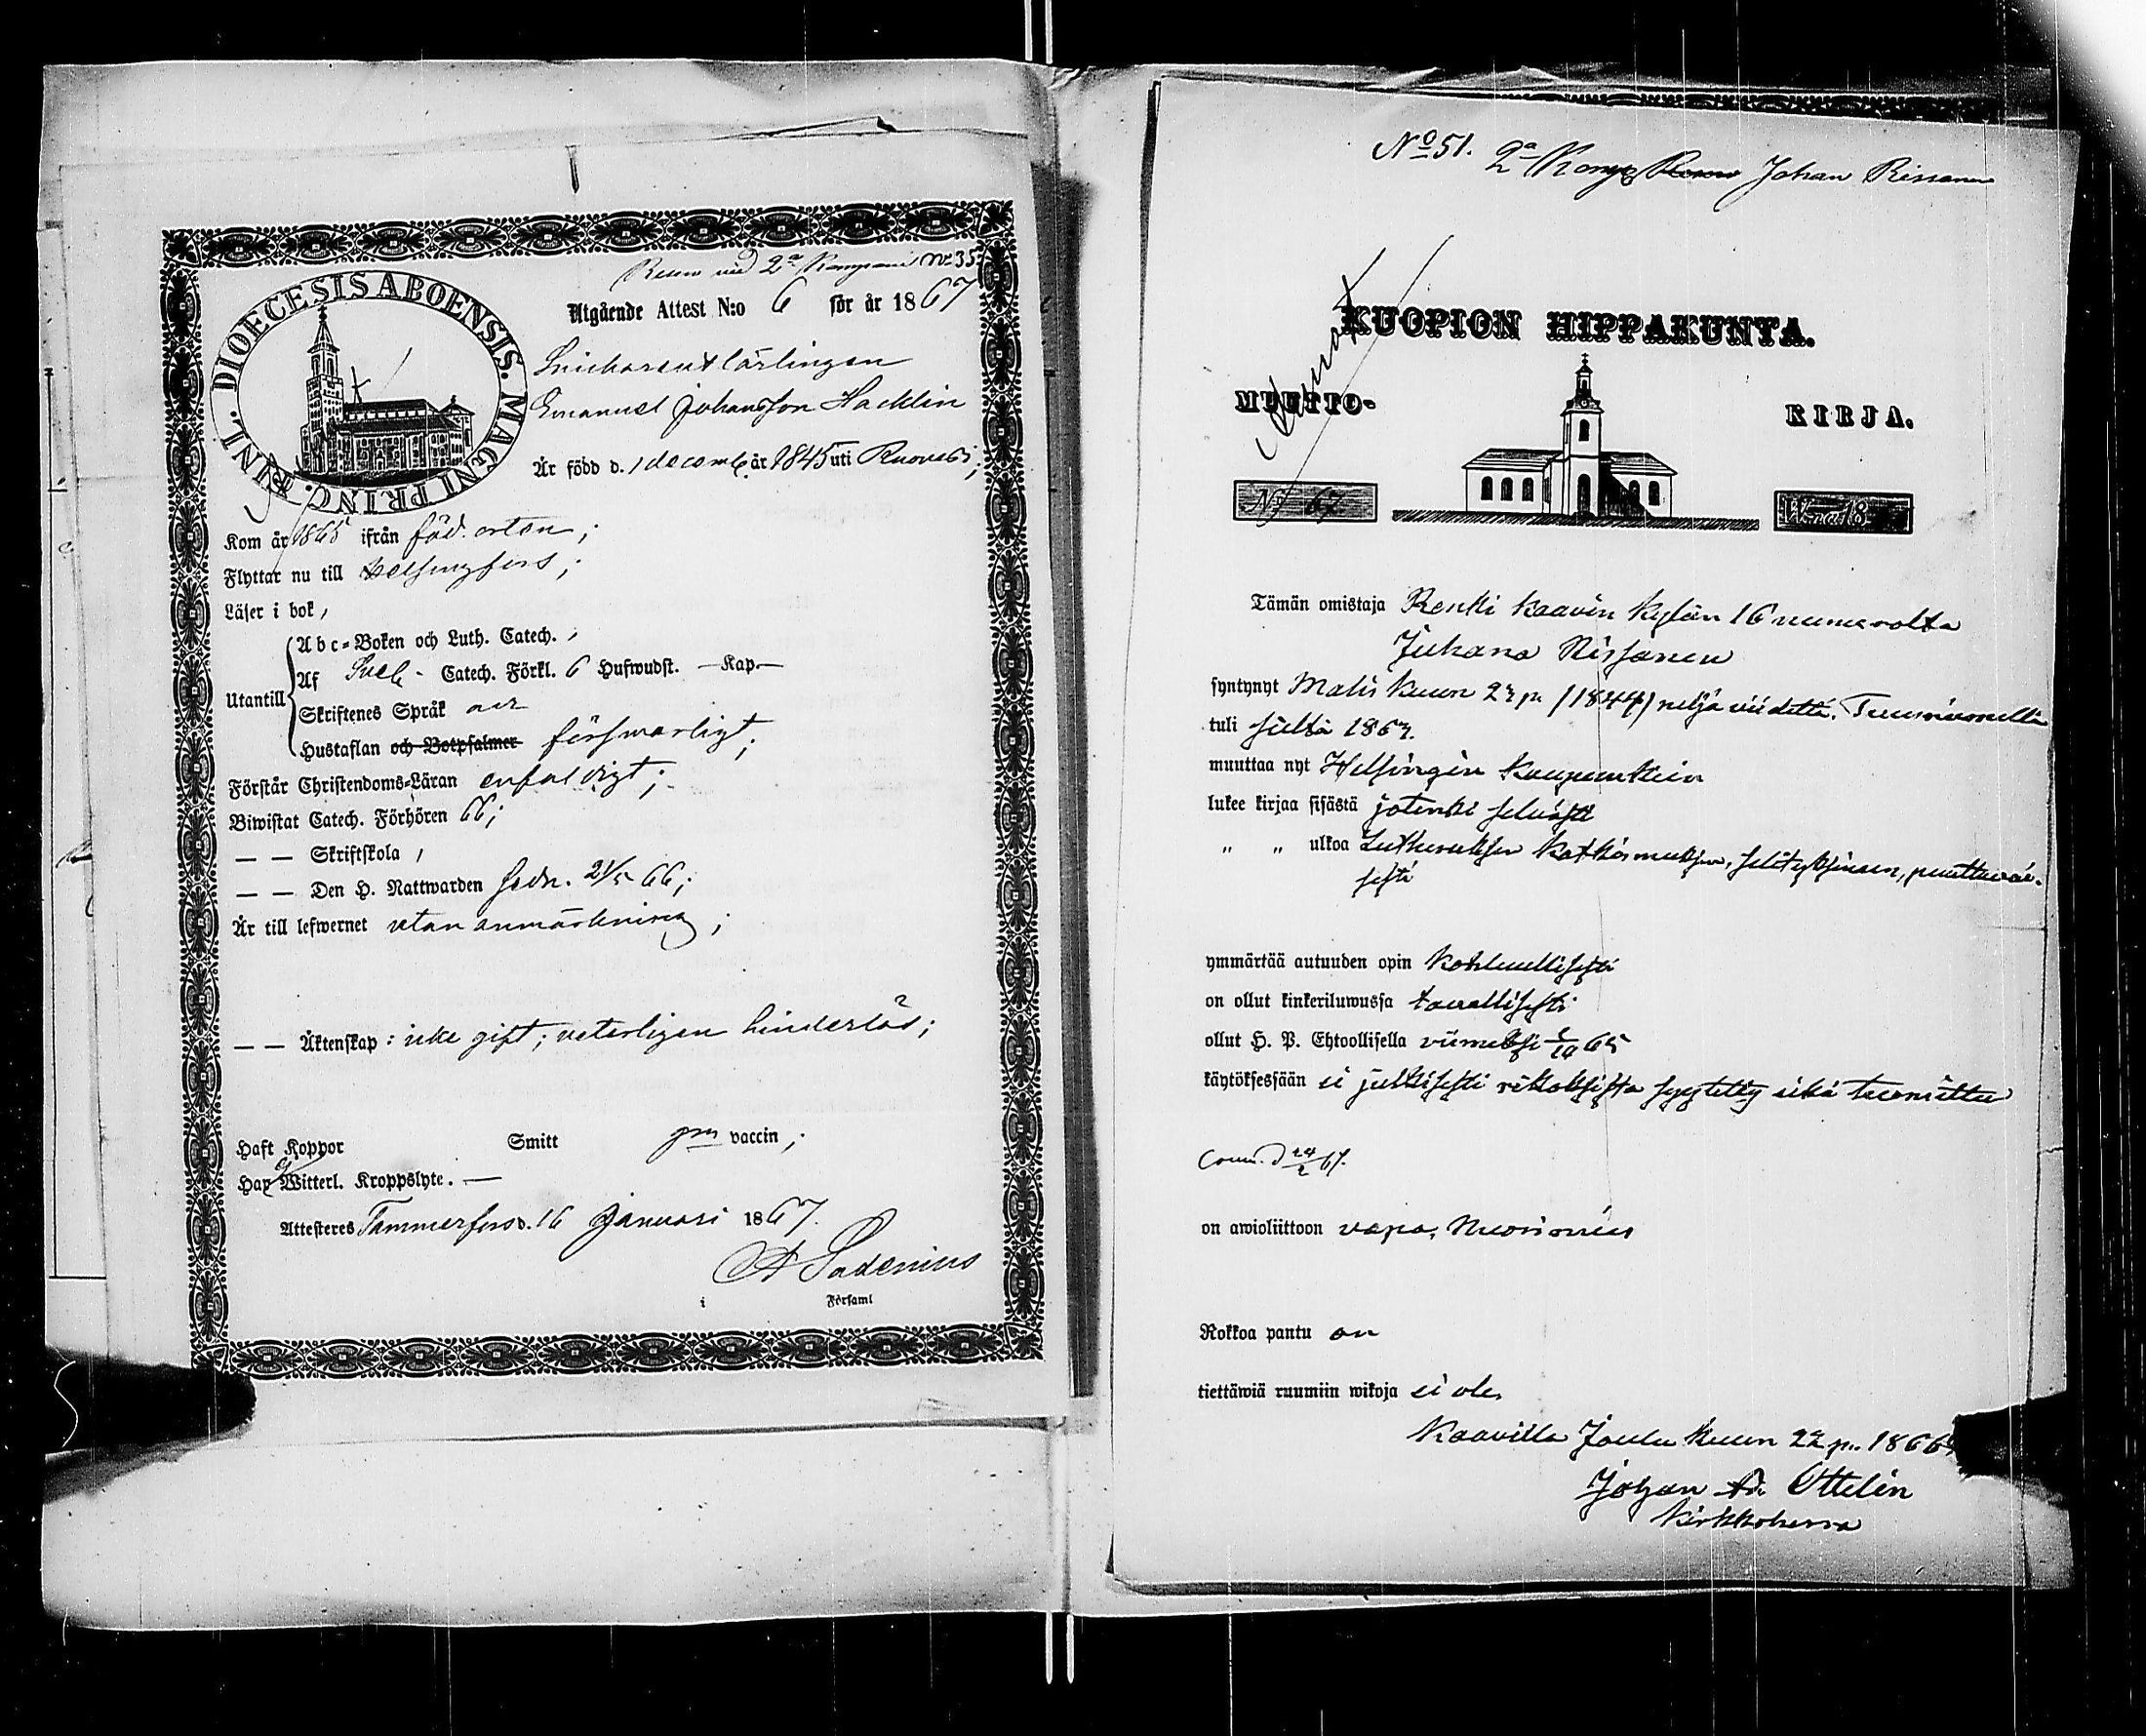 Rekru vid 2a Kompani No 35
Utgående Attest N:o 6 för år 1867
DIOECESIS ABOENSIS. MAGNI PRINC. FINL.
Snickaren
Emanuel Johansson Hacklin
Är född d. 1 decemb. år 1845 uti Ruovesi;
Kom år 1865 ifrån föd. orten;
Flyttar nu till Helsingfors;
Läser i bok,
Utantill
Abc-Boken och Luth. Catech.
Af Sveb. Catech. Förkl. 6 Hufwudst. — Kap. —
Skriftenes Språk
Hustaflan och Botpsalmer försvarligt;
Förstår Christendoms-Läran enfaldigt;
Biwistat Catech. Förhören 66;
— — Skriftskola
— — Den H. Nattwarden sedn. 21/5 66;
Är till lefwernet utan anmärkning;
— — Äktenskap: icke gift; veterligen hinderlös;
Haft Koppor Smitt gm vaccin;
Har ej Witterl. Kroppslyte. —
Attesteres Tammerfors d. 16 Januari 1867.
A Sadenius
i Församl
No 51. 2a Komp Johan Rissanen
KUOPION HIPPAKUNTA.
MUUTTO- KIRJA.
N 67 W:na 18
Tämän omistaja Renki Kaavin kylän 16 numerolta
Juhana Rissanen
syntynyt Malis kuun 27 p. (1844) neljä viidettä. Tuusniemellä
tuli sieltä 1867.
muuttaa nyt Helsingin kaupunkiin
lukee kirjaa sisästä jotenki selvästi
„ „ ulkoa Lutheruksen Katkismuksen, selityksineen, puuttuvai-
sesti
ymmärtää autuuden opin kohtuullisesti
on ollut kinkeriluwussa tavallisesti
ollut H. P. Ehtoollisella viimeksi /10 65
käytöksessään ei julkisesti rikoksista syytetty eikä tuomittu
Comm. d 24/2 67.
on awioliittoon vapa, Nuorimies
Rokkoa pantu on
tiettäwiä ruumiin wikoja ei ole,
Kaavilla Joulu kuun 22 p. 1866
Johan Ad. Ottelin
Kirkkoherra